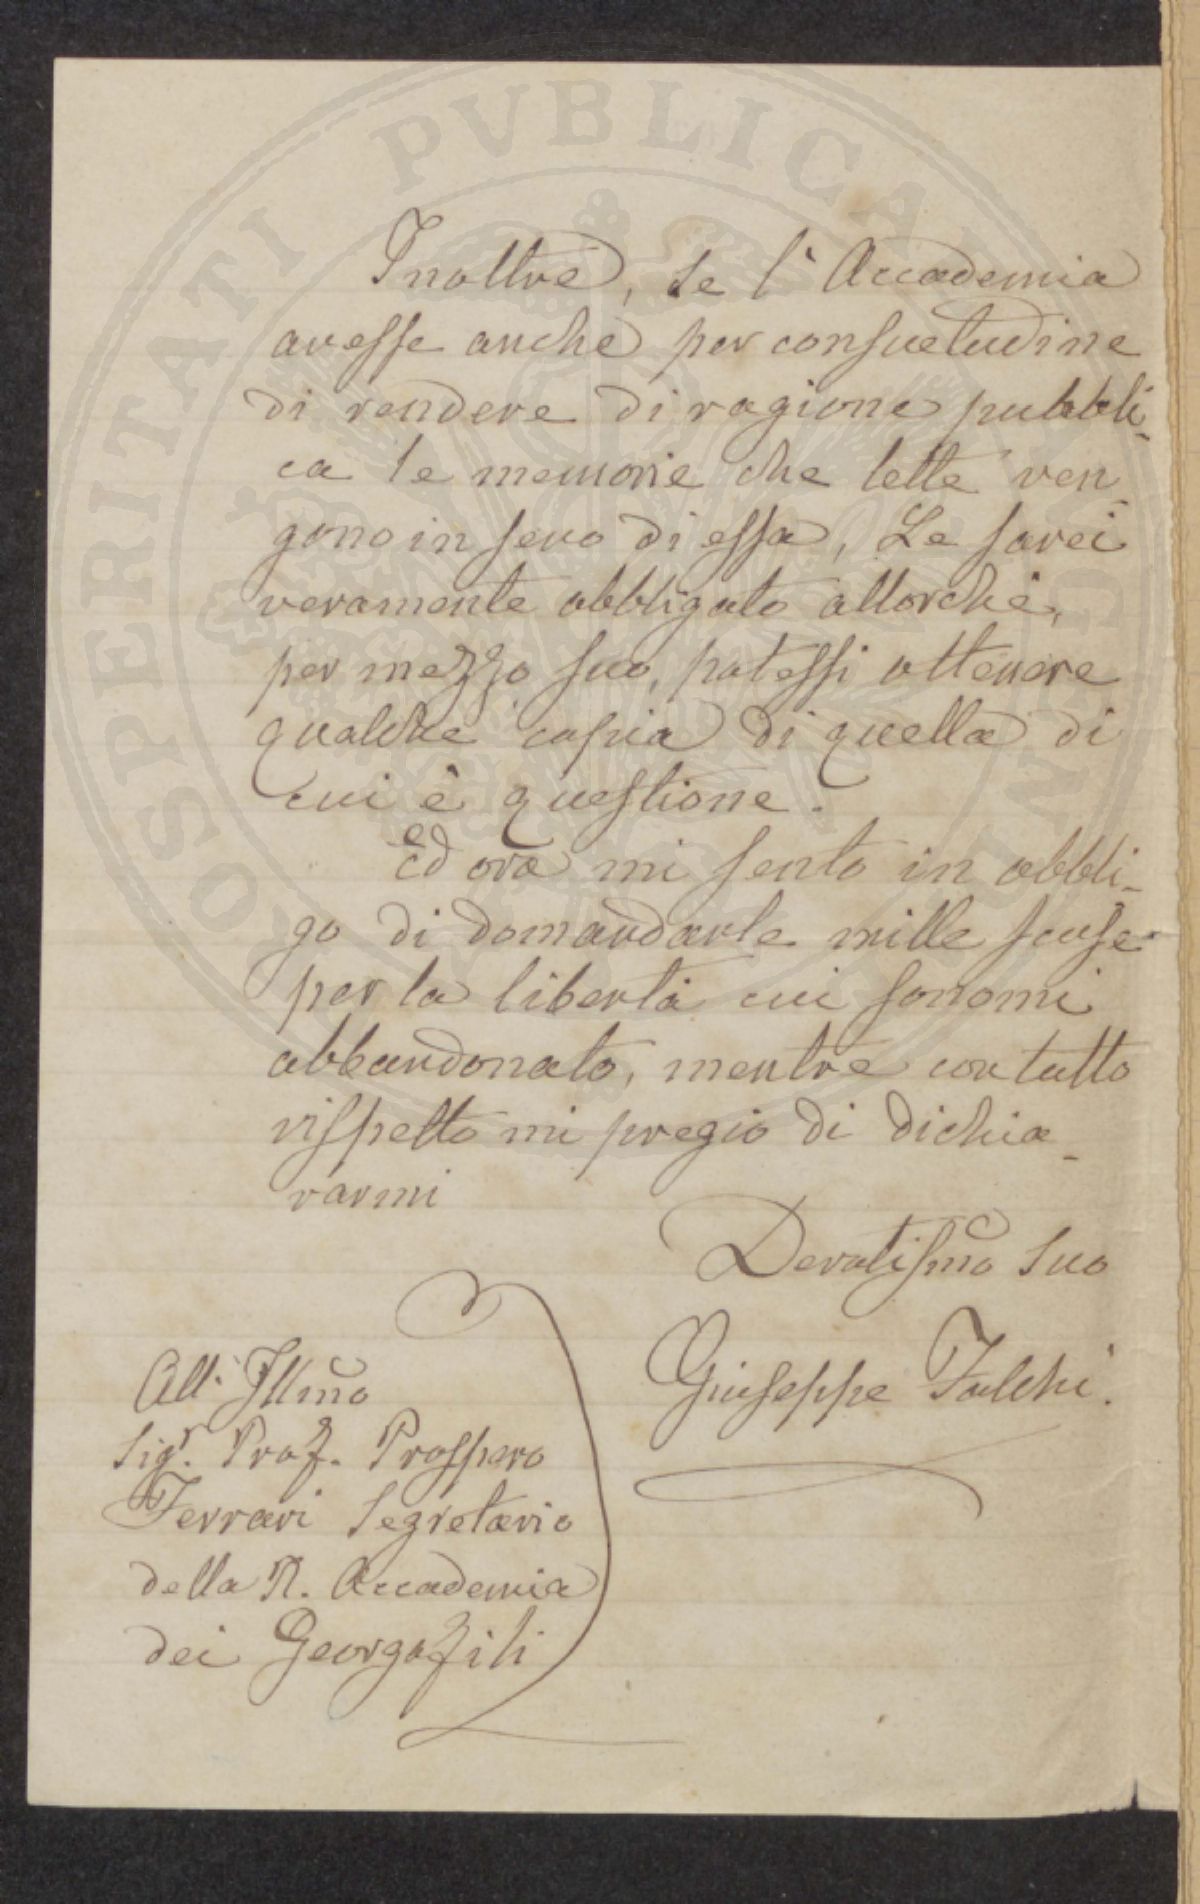 Inoltre, se l'Accademia
avesse anche per consuetudine
di rendere di ragione pubbli-
ca le memorie che lette ven-
gono in seno di essa, Le sarei
veramente obbligato allorchè,
per mezzo suo, potessi ottenere
qualche copia di quella di
cui è questione.
Ed ora mi sento in obbli-
go di domandarle mille scuse
per la libertà cui sonomi
abbandonato, mentre con tutto
rispetto mi pregio di dichia-
rarmi
Devotissmo Suo
Giuseppe Falchi.
All'Illmo
Sigr. Prof. Prospero
Ferrari Segretario
della R. Accademia
dei Georgofili
PROSPERITATI PUBLICAE